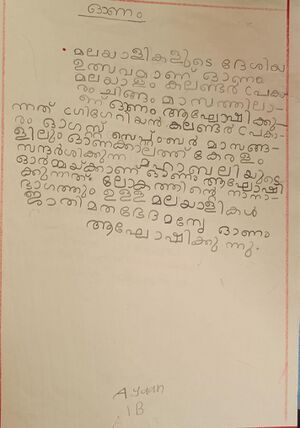 ഓണം
മലയാളികളുടെ ദേശിയ
ഉത്സവമാണ് ഓണം
മലയാളം കലണ്ടർ പ്രകാ
രം ചിങ്ങം മാസത്തിലാ
ണ് ഓണം ആഘോഷിക്കു
ന്നത് ഗ്രിഗേറിയൻ കലണ്ടർ പ്രകാ
രം ഓഗസ്റ്റ് സെപ്റ്റംബർ മാസങ്ങ
ളിലും ഓണക്കാലത്ത് കേരളം
സന്ദർശിക്കുന്ന മഹാബലിയുടെ
ഓർമ്മയ്ക്കാണ് ഓണം ആഘോഷി
ക്കുന്നത്. ലോകത്തിന്റെ നാനാ
ഭാഗത്തും ഉള്ള മലയാളികൾ
ജാതിമതഭേദമന്യേ ഓണം
ആഘോഷിക്കുന്നു.
Ayaan
1B